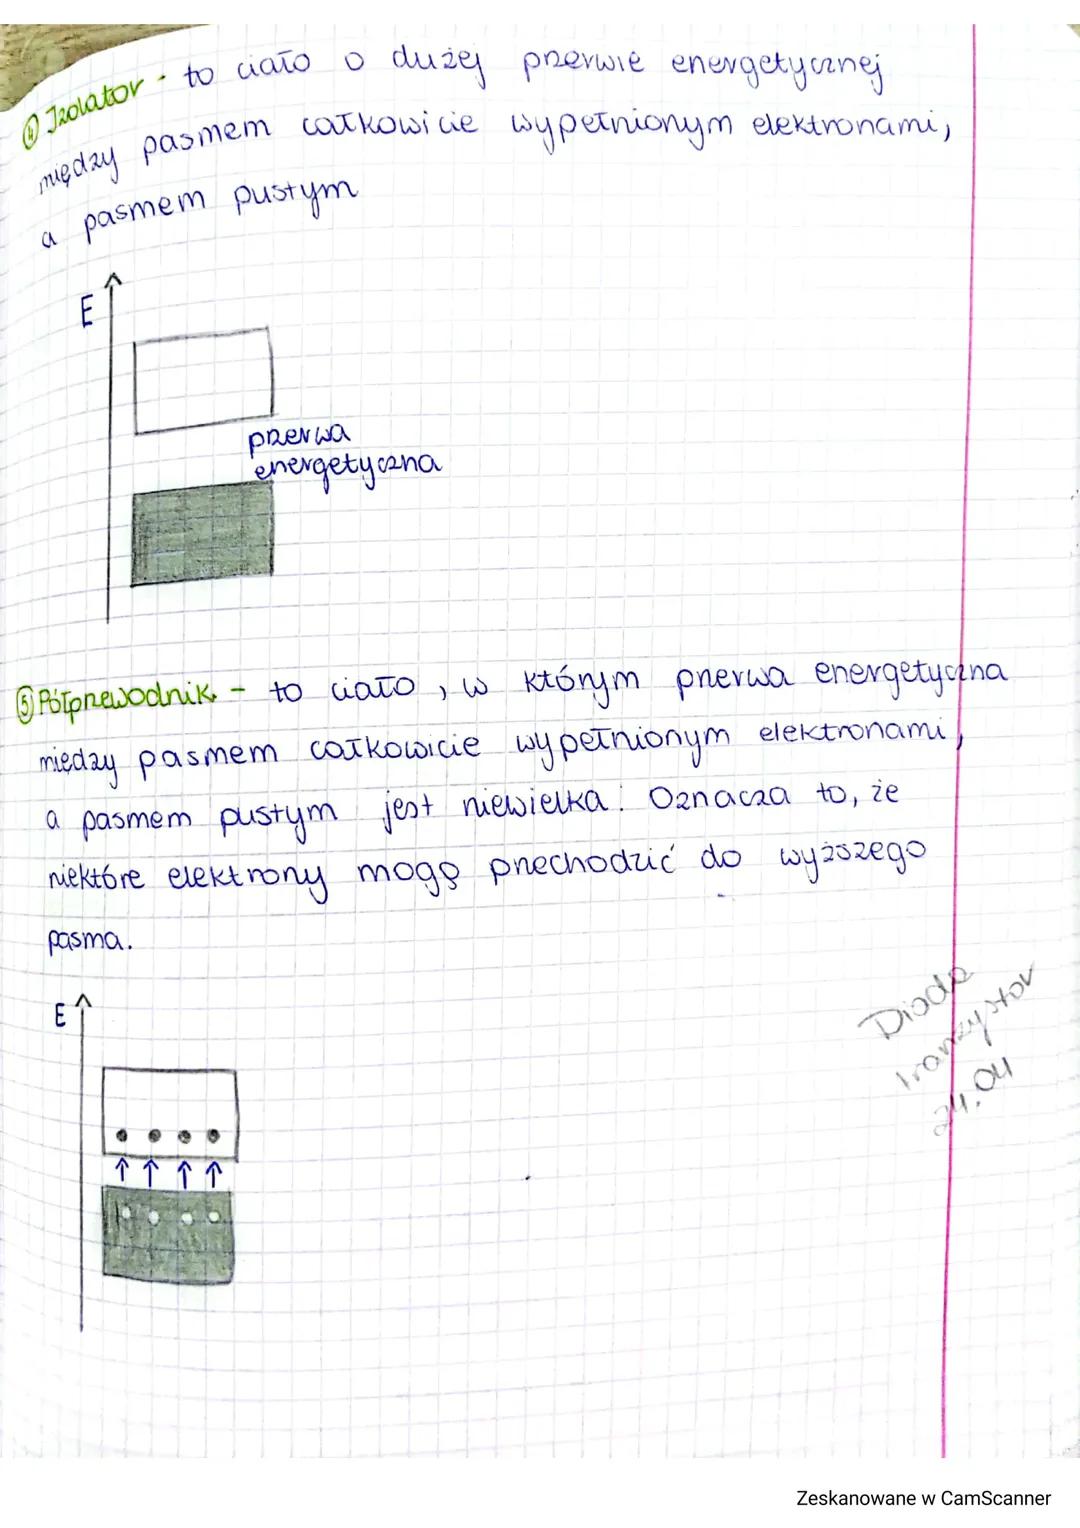 ④ Izolator - to ciało o dużej przerwie energetycznej
między pasmem całkowicie wypełnionym elektronami,
a pasmem pustym
E
przerwa
energetyczna
⑤ Półprzewodnik - to ciało, w którym przerwa energetyczna
między pasmem całkowicie wypełnionym elektronami,
a pasmem pustym jest niewielka. Oznacza to, że
niektóre elektrony mogą przechodzić do wyższego
pasma.
Dioda
tranzystor
24.04
E
Zeskanowane w CamScanner